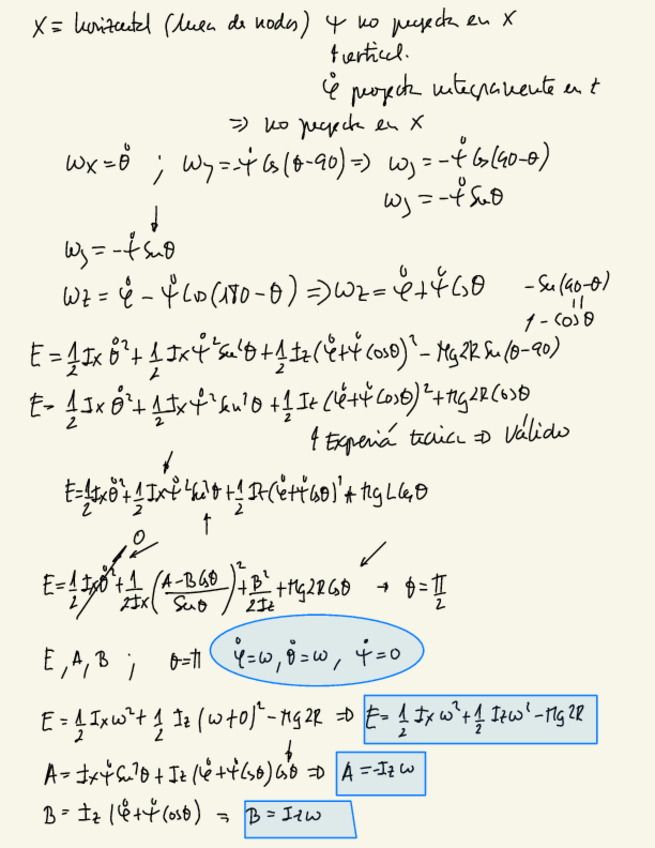 X = horizontal (linea de nodos) ψ no proyecta en X
↑ vertical.
φ̇ proyecta integramente en z
⇒ no proyecta en X
ωx = θ̇ ; ωy = -ψ̇ Cos(θ-90) ⇒ ωy = -ψ̇ Cos(90-θ)
ωy = -ψ̇ Senθ
↓
ωy = -ψ̇ Senθ
ωz = φ̇ - ψ̇ Cos(180-θ) ⇒ ωz = φ̇ + ψ̇ Cosθ - Sen(90-θ)
॥
1 - Cosθ
E = 1/2 Ix θ̇² + 1/2 Ix ψ̇² Sen²θ + 1/2 Iz (φ̇ + ψ̇ Cosθ)² - Mg2R Sen(θ-90)
E = 1/2 Ix θ̇² + 1/2 Ix ψ̇² Sen²θ + 1/2 Iz (φ̇ + ψ̇ Cosθ)² + Mg2R Cosθ
↑ ⇒ Válido
E = 1/2 Ix θ̇² + 1/2 Ix ψ̇² Sen²θ + 1/2 Iz (φ̇ + ψ̇ Cosθ)² + MgL Cosθ
↑
0
E = 1/2 Ix θ̇² + 1/2Ix ((A - B Cosθ)/Senθ)² + B²/2Iz + Mg2R Cosθ → θ = π/2
E, A, B ; θ = π φ̇ = ω, θ̇ = ω, ψ̇ = 0
E = 1/2 Ix ω² + 1/2 Iz (ω + 0)² - Mg2R ⇒ E = 1/2 Ix ω² + 1/2 Iz ω² - Mg2R
A = Ix ψ̇ Sen²θ + Iz (φ̇ + ψ̇ Cosθ) Cosθ ⇒ A = -Iz ω
B = Iz (φ̇ + ψ̇ Cosθ) ⇒ B = Iz ω